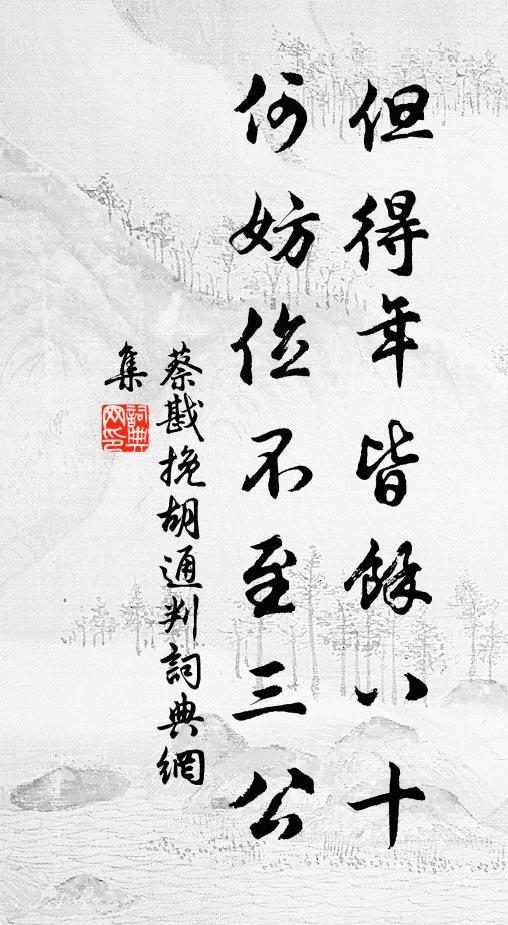 但得年皆餘八十
何妨位不至三公
蔡戡挽胡通判詞典網
集
詞典
网印